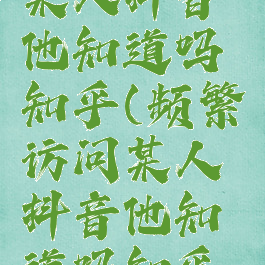 某人抖音
他知道吗
知乎(频繁
访问某人
抖音他知
道吗知乎